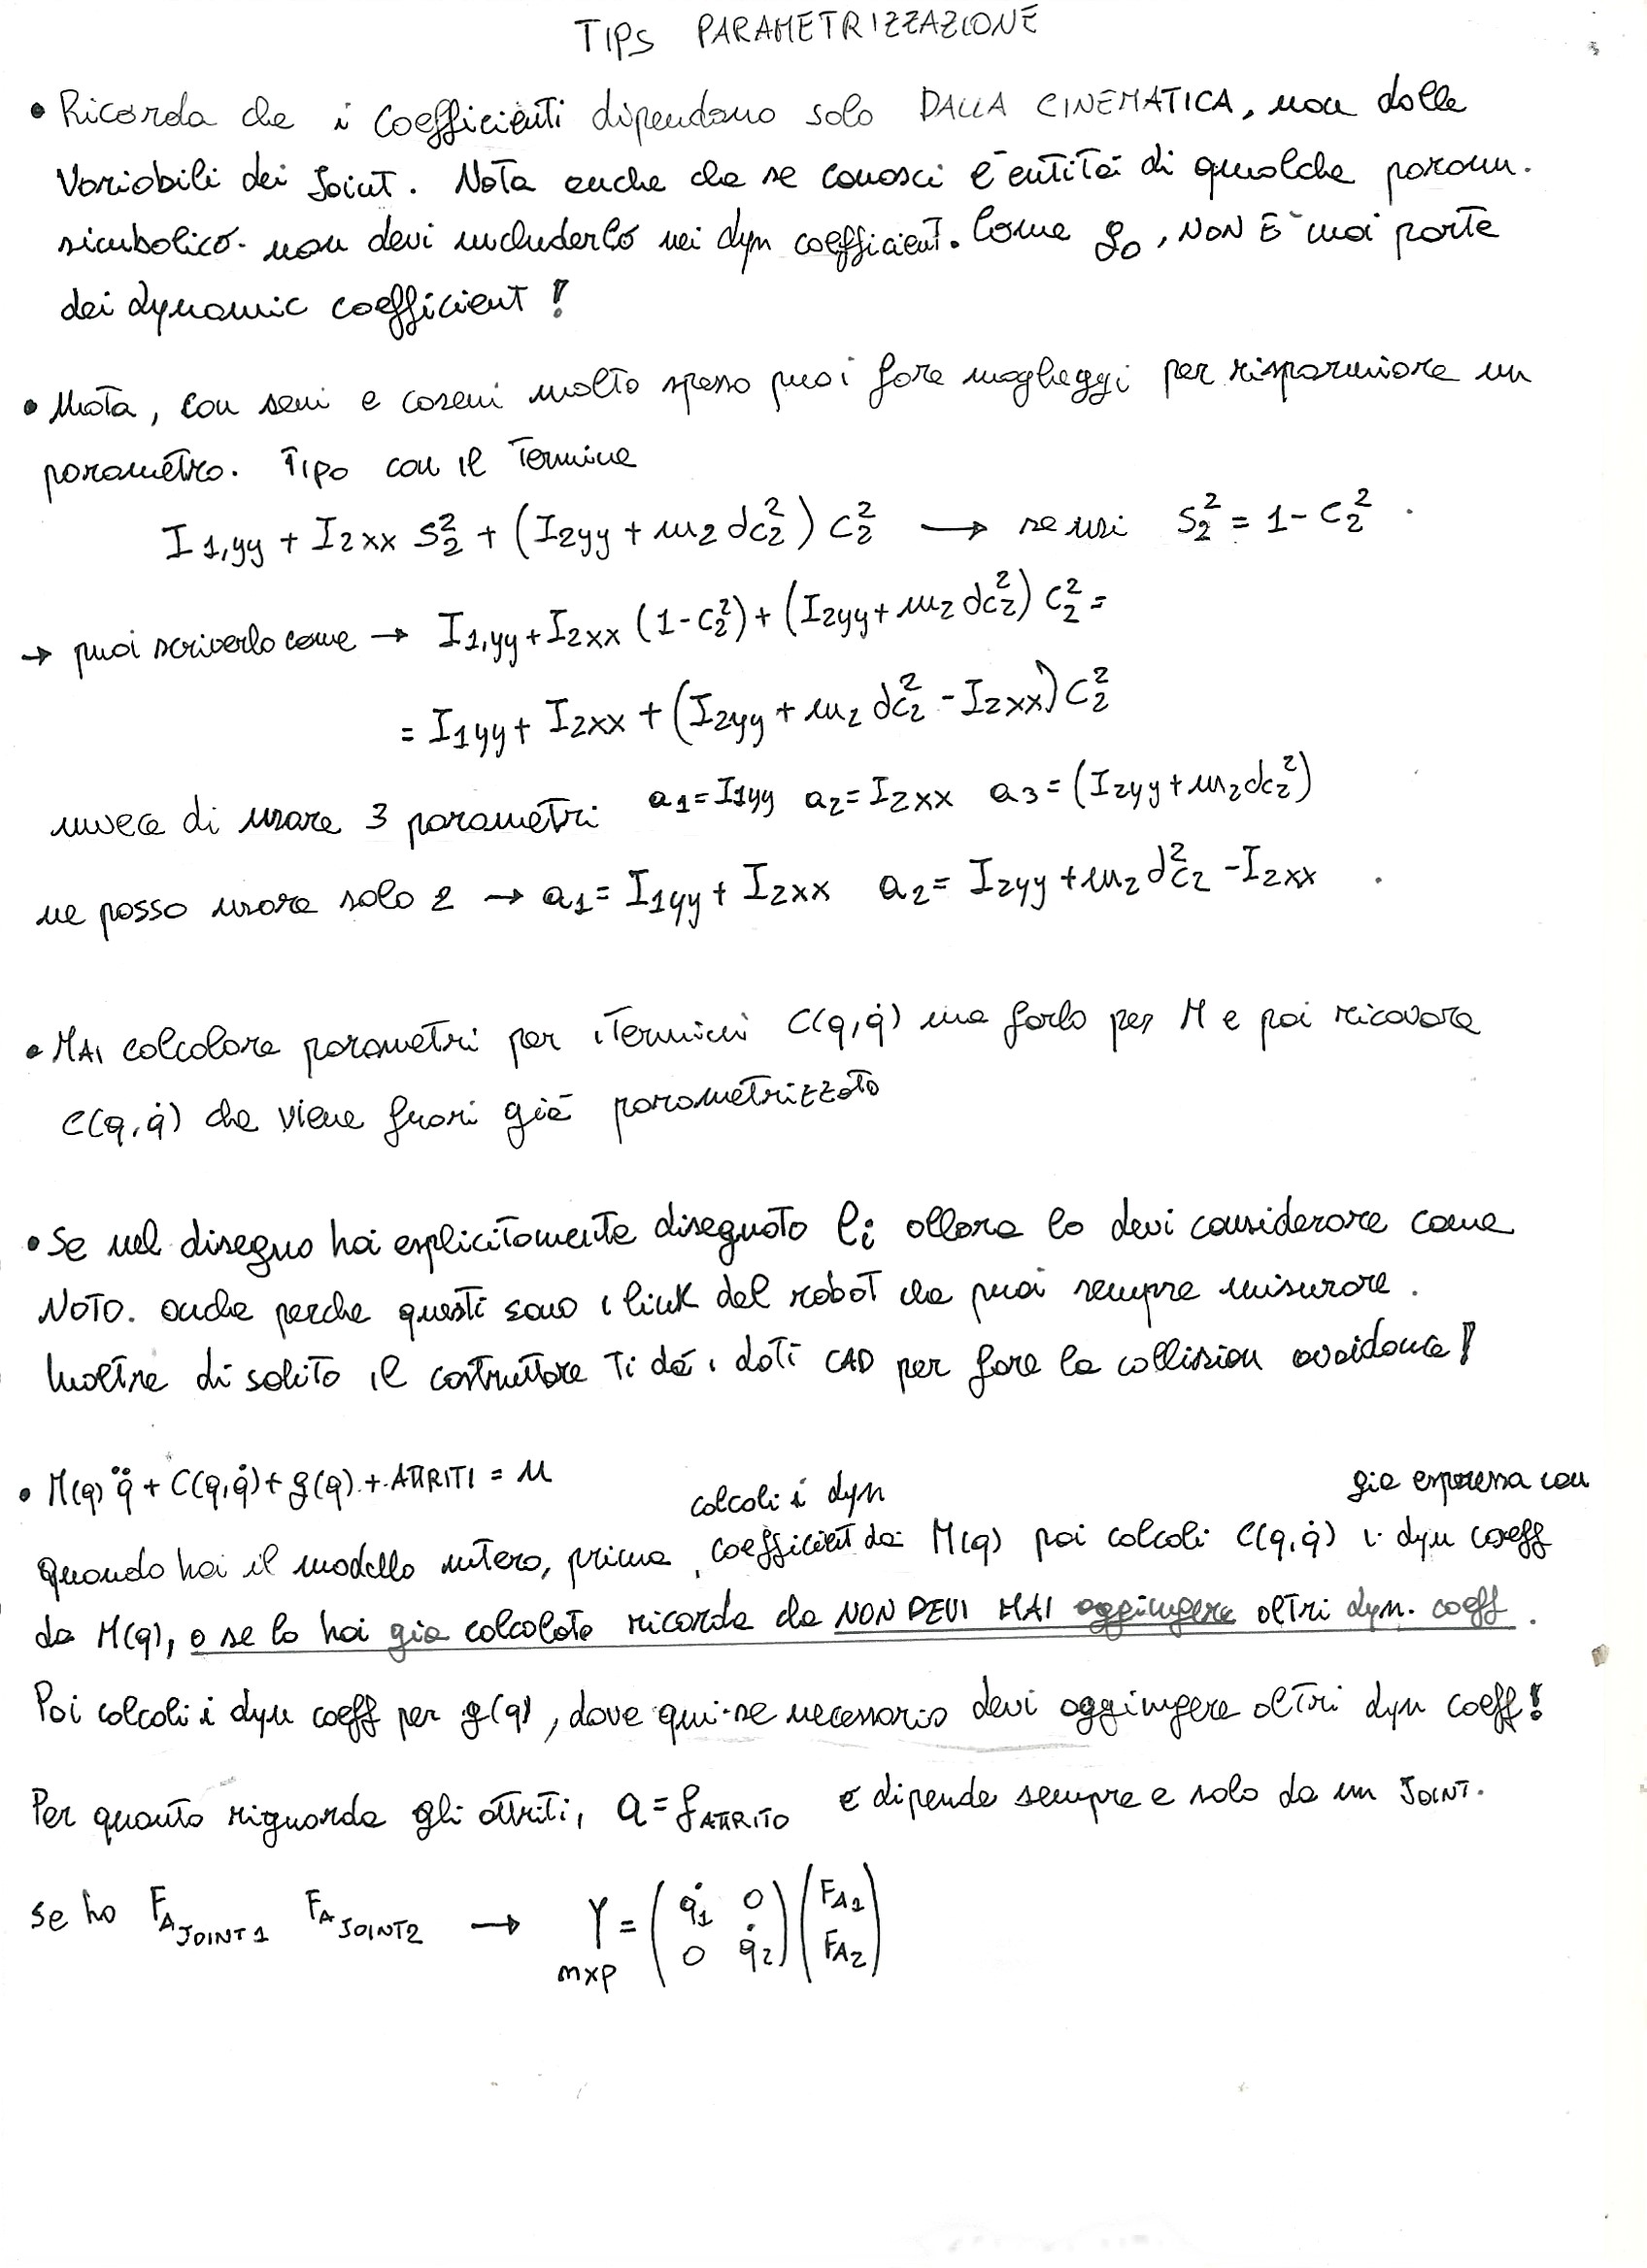 TIPS PARAMETRIZZAZIONE
• Ricorda che i coefficienti dipendono solo DALLA CINEMATICA, non dalle
variabili dei Joint. Nota anche che se conosci l'entità di qualche param.
simbolico non devi includerlo nei dyn coefficient. Come g₀, NON È mai parte
dei dynamic coefficient!
• Nota, con seni e coseni molto spesso puoi fare magheggi per risparmiare un
parametro. Tipo con il termine
I1,yy + I2xx S₂² + (I2yy + m2 dc2²) C₂² → se usi S₂² = 1 - C₂²
→ puoi scriverlo come → I1,yy + I2xx (1 - C₂²) + (I2yy + m2 dc2²) C₂² =
= I1yy + I2xx + (I2yy + m2 dc2² - I2xx) C₂²
invece di usare 3 parametri a1 = I1yy a2 = I2xx a3 = (I2yy + m2 dc2²)
ne posso usare solo 2 → a1 = I1yy + I2xx a2 = I2yy + m2 dc2² - I2xx
• MAI calcolare parametri per i termini C(q,q̇) ma farlo per M e poi ricavare
C(q,q̇) che viene fuori già parametrizzato
• Se nel disegno hai esplicitamente disegnato li allora lo devi considerare come
NOTO. anche perche questi sono i link del robot che puoi sempre misurare.
Inoltre di solito il costruttore ti dà i dati CAD per fare la collision avoidance!
• M(q) q̈ + C(q,q̇) + g(q) + ATTRITI = u
calcoli i dyn già espressa con
Quando hai il modello intero, prima, coefficient da M(q) poi calcoli C(q,q̇) i dyn coeff
da M(q), o se lo hai già calcolato ricorda che NON DEVI MAI aggiungere altri dyn. coeff.
Poi calcoli i dyn coeff per g(q), dove qui se necessario devi aggiungere altri dyn coeff!
Per quanto riguarda gli attriti, a = fATTRITO e dipende sempre e solo da un JOINT.
se ho FA JOINT1 FA JOINT2 → Y = ( q̇1 0 ) ( FA1 )
mxp ( 0 q̇2 ) ( FA2 )